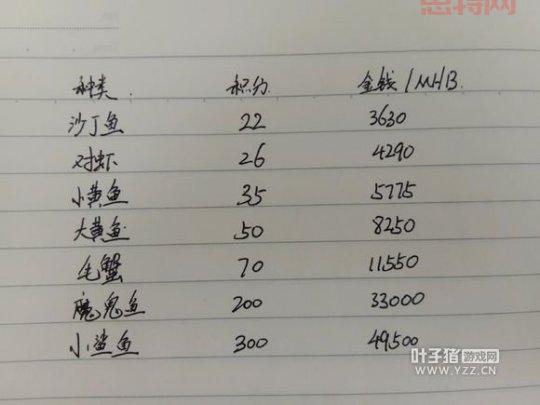 思特网
种类 积分 金钱/MHB
沙丁鱼 22 3630
对虾 26 4290
小黄鱼 35 5775
大黄鱼 50 8250
毛蟹 70 11550
魔鬼鱼 200 33000
小鲨鱼 300 49500
叶子猪游戏网
WWW.YZZ.CN